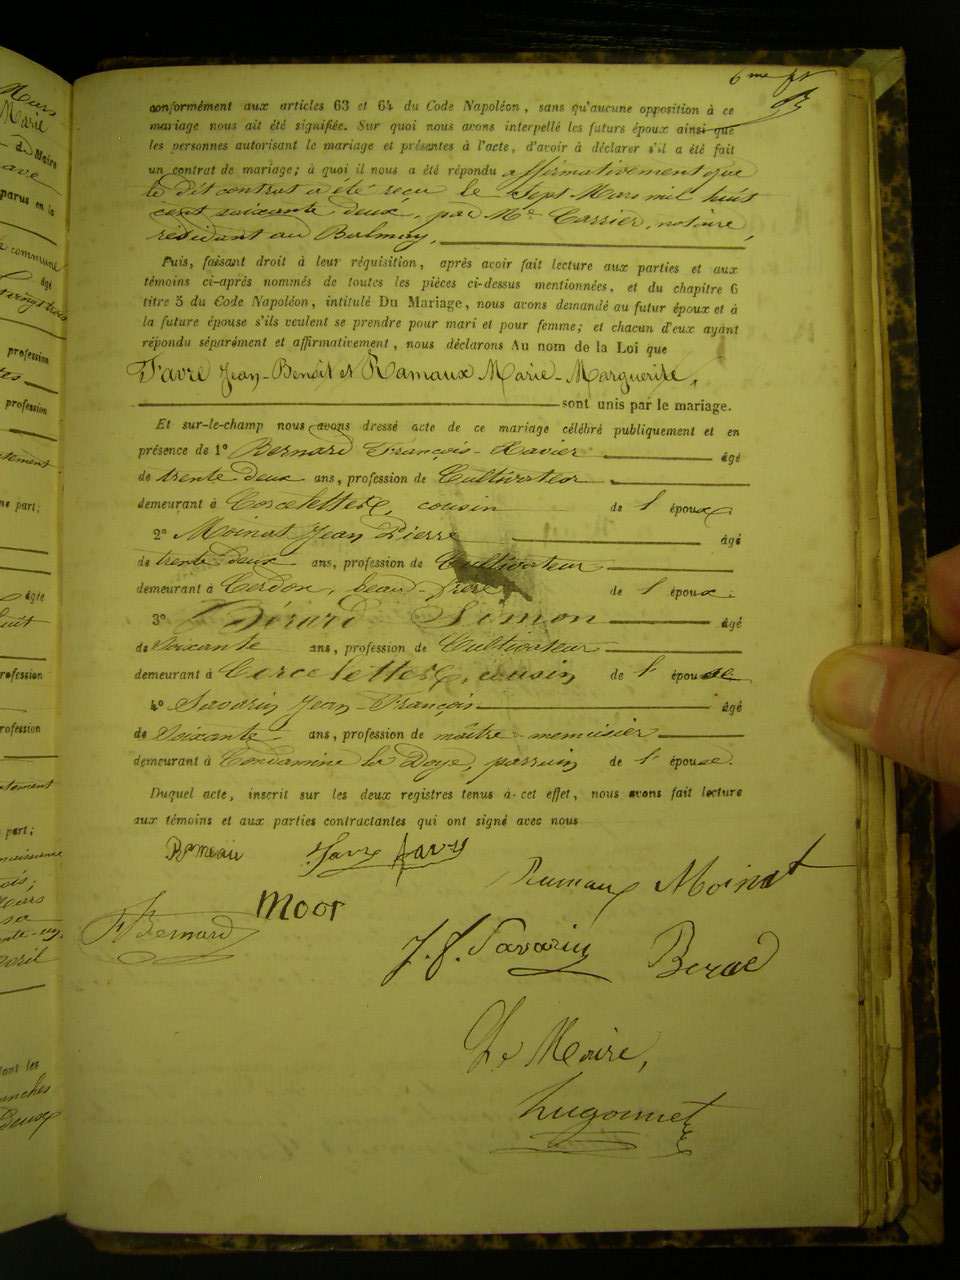 6me ft
conformément aux articles 63 et 64 du Code Napoléon, sans qu'aucune opposition à ce
mariage nous ait été signifiée. Sur quoi nous avons interpellé les futurs époux ainsi que
les personnes autorisant le mariage et présentes à l'acte, d'avoir à déclarer s'il a été fait
un contrat de mariage; à quoi il nous a été répondu affirmativement et que
le dit contrat a été reçu le Sept Mars mil huit
cent soixante deux, par Me Carrier, notaire,
résidant au Balmay,
Puis, faisant droit à leur réquisition, après avoir fait lecture aux parties et aux
témoins ci-après nommés de toutes les pièces ci-dessus mentionnées, et du chapitre 6
titre 5 du Code Napoléon, intitulé Du Mariage, nous avons demandé au futur époux et à
la future épouse s'ils veulent se prendre pour mari et pour femme; et chacun d'eux ayant
répondu séparément et affirmativement, nous déclarons Au nom de la Loi que
Favre Jean-Benoît et Ramaux Marie-Marguerite,
sont unis par le mariage.
Et sur-le-champ nous avons dressé acte de ce mariage célébré publiquement et en
présence de 1° Bernard François-Xavier âgé
de trente deux ans, profession de Cultivateur
demeurant à Corcelettes, cousin de l'époux
2° Moinat Jean Pierre âgé
de trente deux ans, profession de Cultivateur
demeurant à Cerdon, beau-frère de l'époux.
3° Bérard Simon âgé
de Soixante ans, profession de Cultivateur
demeurant à Corcelettes, cousin de l'épouse
4° Savarin Jean-François âgé
de Soixante ans, profession de maître-menuisier
demeurant à Condamine la Doye, parrain de l'épouse.
Duquel acte, inscrit sur les deux registres tenus à cet effet, nous avons fait lecture
aux témoins et aux parties contractantes qui ont signé avec nous
Favre Favre
Rumaux Moinat
F Bernard
J. f. Savarin Berard
Le Maire,
hugonnet
Mars
Marie
de Maire
parus en la
commune
âgé
profession
profession
part;
âgée
huit
profession
profession
part;
Mars
avril
dont les